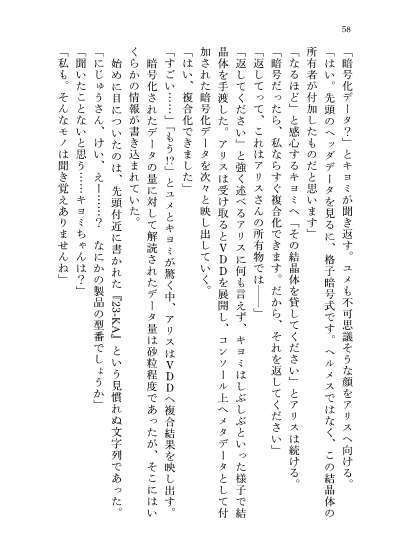 58
「暗号化データ？」とキヨミが聞き返す。ユメも不可思議そうな顔をアリスへ向ける。
「はい。先頭のヘッダデータを見るに、格子暗号式です。ヘルメスではなく、この結晶体の
所有者が付加したものだと思います」
「なるほど」と感心するキヨミへ「その結晶体を貸してください」とアリスは続ける。
「暗号だったら、私ならすぐ複合化できます。だから、それを返してください」
「返してって、これはアリスさんの所有物では――」
「返してください」と強く述べるアリスに何も言えず、キヨミはしぶしぶといった様子で結
晶体を手渡した。アリスは受け取るとVDDを展開し、コンソール上へメタデータとして付
加された暗号化データを次々と映し出していく。
「はい、複合化できました」
「すごい……」「もう!?」とユメとキヨミが驚く中、アリスはVDDへ複合結果を映し出す。
暗号化されたデータの量に対して解読されたデータ量は砂粒程度であったが、そこにはい
くらかの情報が書き込まれていた。
始めに目についたのは、先頭付近に書かれた『23-KA』という見慣れぬ文字列であった。
「にじゅうさん、けい、えー……？　なにかの製品の型番でしょうか」
「聞いたことないと思う……キヨミちゃんは？」
「私も。そんなモノは聞き覚えありませんね」